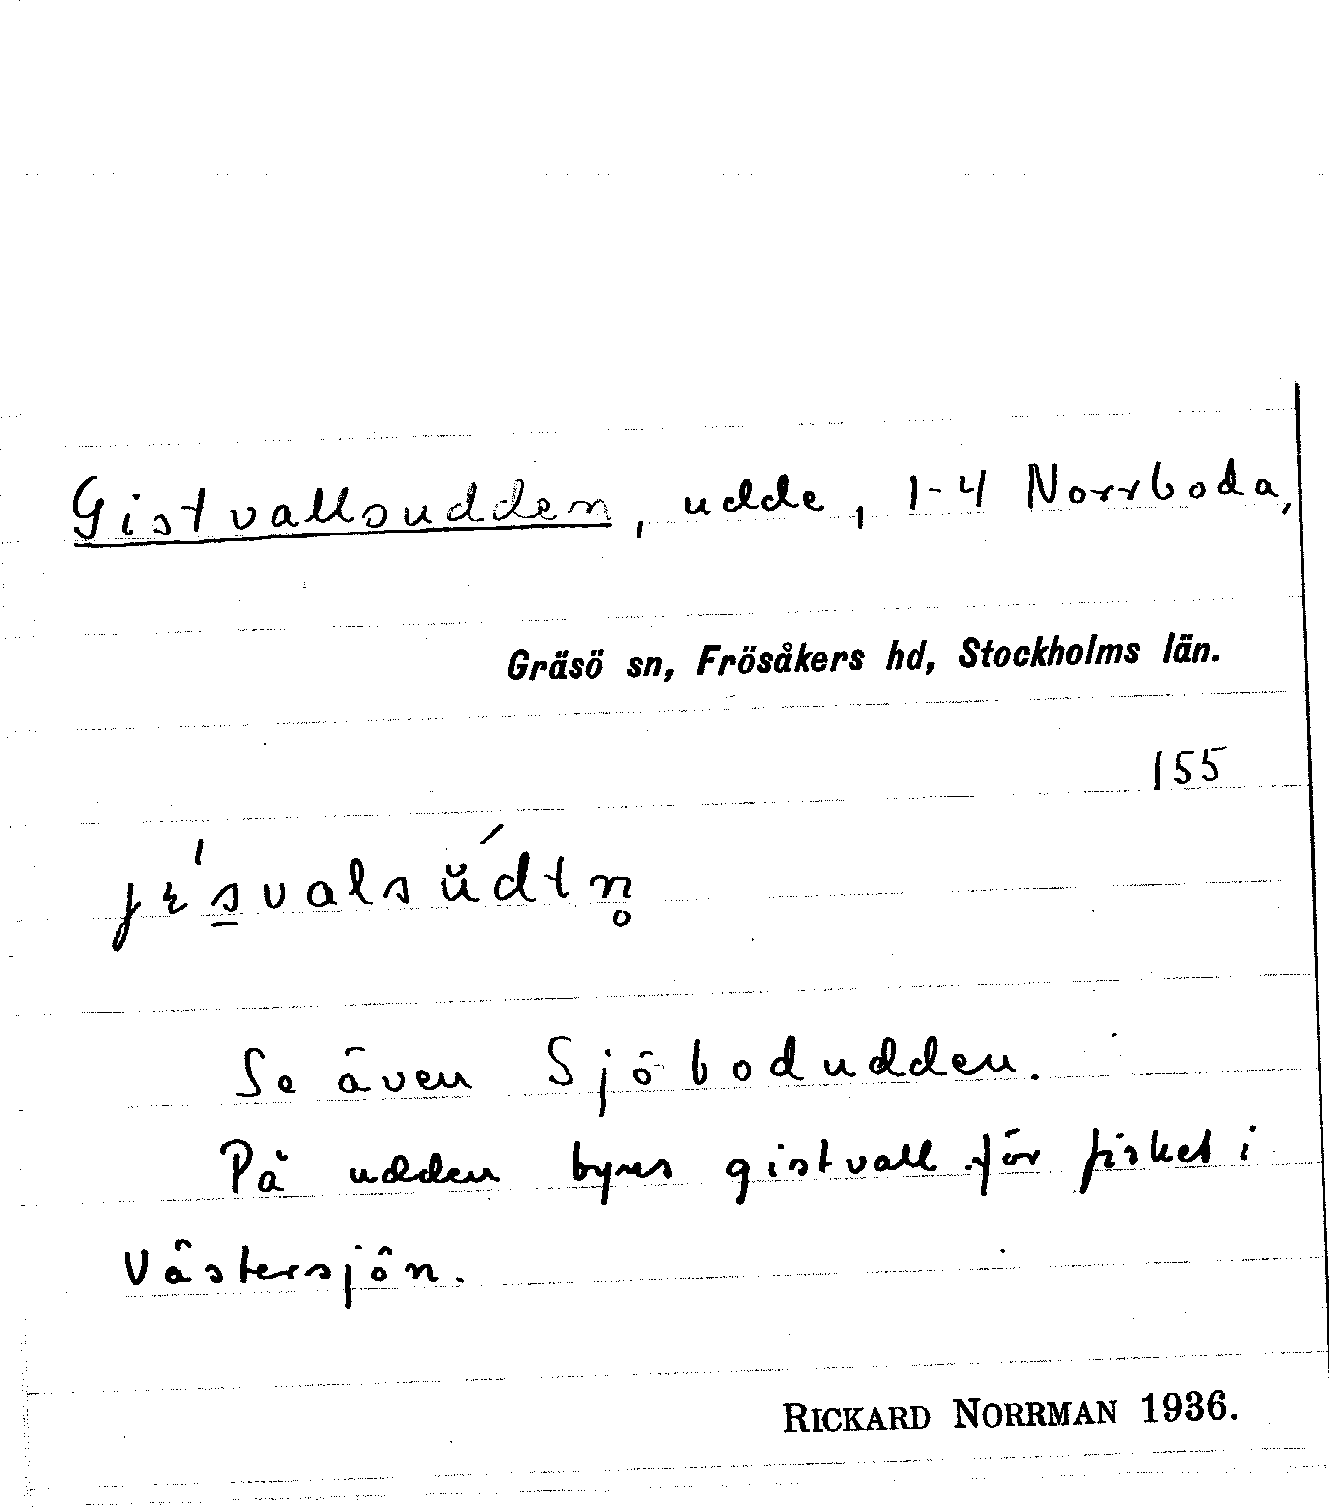 Gistvallsudden, udde, 1-4 Norrboda,
Gräsö sn, Frösåkers hd, Stockholms län.
155
Se även Sjöbodudden.
På udden byns gistvall för fisket i
Västersjön.
RICKARD NORRMAN 1936.